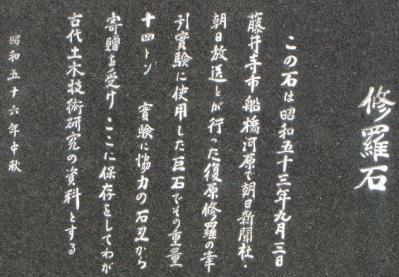 修羅石
この石は昭和五十三年九月三日
藤井寺市船橋河原で朝日新聞社・
朝日放送とが行った復原修羅の牽
引實験に使用した巨石でその重量
十四トン 實験に協力の石丑から
寄贈を受け ここに保存をしてわが
古代土木技術研究の資料とする
昭和五十六年中秋